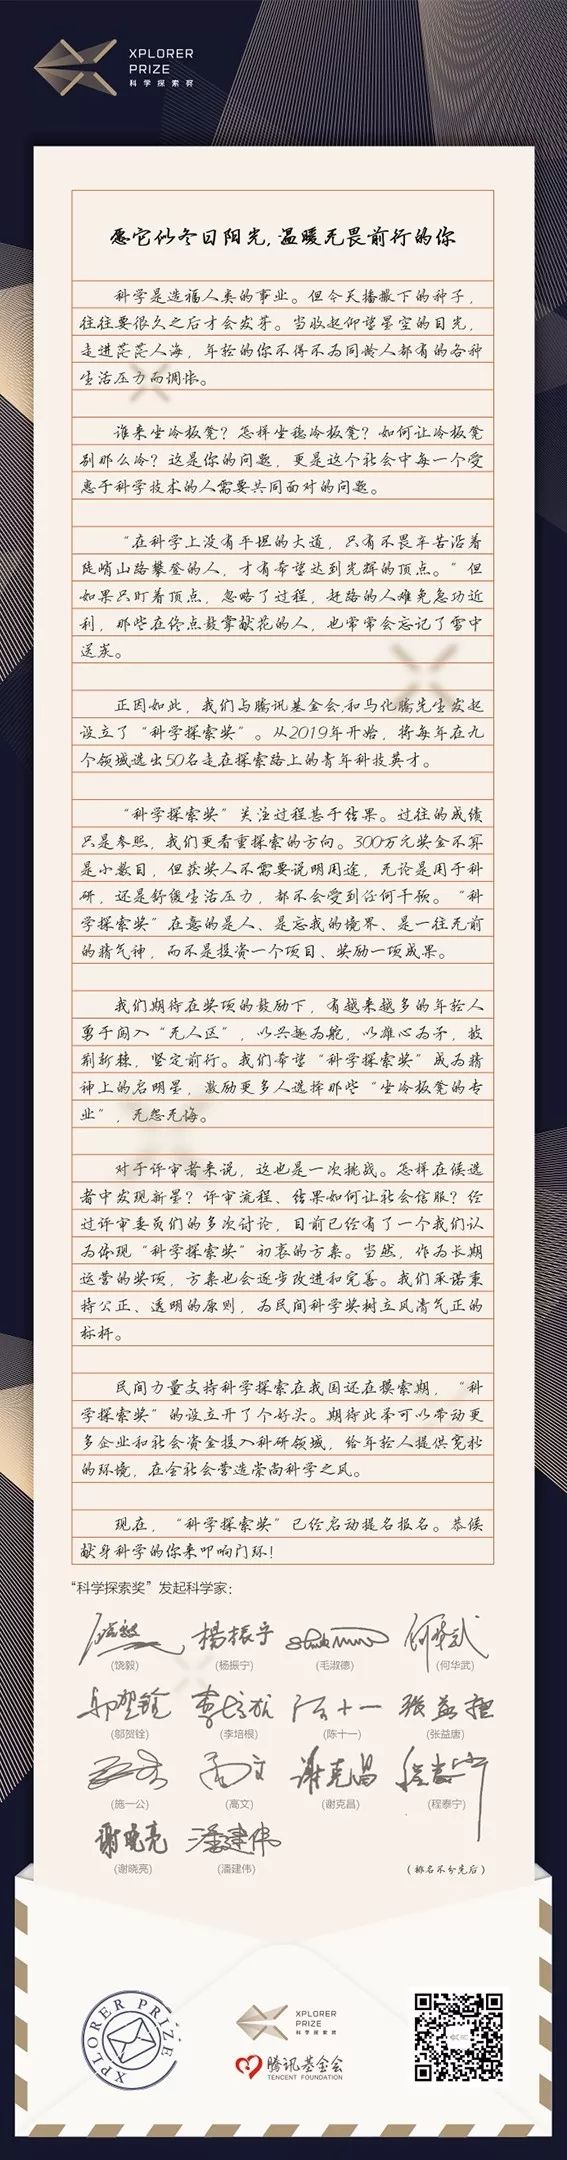 XPLORER
PRIZE
科学探索奖
愿它似冬日阳光,温暖无畏前行的你
科学是造福人类的事业。但今天播撒下的种子,
往往要很久之后才会发芽。当收起仰望星空的目光,
走进茫茫人海,年轻的你不得不为同龄人都有的各种
生活压力而惆怅。
谁来坐冷板凳?怎样坐稳冷板凳?如何让冷板凳
别那么冷?这是你的问题,更是这个社会中每一个受
惠于科学技术的人需要共同面对的问题。
“在科学上没有平坦的大道,只有不畏辛苦沿着
陡峭山路攀登的人,才有希望达到光辉的顶点。”但
如果只盯着顶点,忽略了过程,赶路的人难免急功近
利,那些在终点鼓掌献花的人,也常常会忘记了雪中
送炭。
正因如此,我们与腾讯基金会和马化腾先生发起
设立了“科学探索奖”。从2019年开始,将每年在九
个领域选出50名走在探索路上的青年科技英才。
“科学探索奖”关注过程甚于结果。过往的成绩
只是参照,我们更看重探索的方向。300万元奖金不算
是小数目,但获奖人不需要说明用途,无论是用于科
研,还是舒缓生活压力,都不会受到任何干预。“科
学探索奖”在意的是人、是忘我的境界、是一往无前
的精气神,而不是投资一个项目、奖励一项成果。
我们期待在奖项的鼓励下,有越来越多的年轻人
勇于闯入“无人区”,以兴趣为舵,以雄心为矛,披
荆斩棘,坚定前行。我们希望“科学探索奖”成为精
神上的启明星,激励更多人选择那些“坐冷板凳的专
业”,无怨无悔。
对于评审者来说,这也是一次挑战。怎样在候选
者中发现新星?评审流程、结果如何让社会信服?经
过评审委员们的多次讨论,目前已经有了一个我们认
为体现“科学探索奖”初衷的方案。当然,作为长期
运营的奖项,方案也会逐步改进和完善。我们承诺秉
持公正、透明的原则,为民间科学奖树立风清气正的
标杆。
民间力量支持科学探索在我国还在摸索期,“科
学探索奖”的设立开了个好头。期待此举可以带动更
多企业和社会资金投入科研领域,给年轻人提供宽松
的环境,在全社会营造崇尚科学之风。
现在,“科学探索奖”已经启动提名报名。恭候
献身科学的你来叩响门环!
“科学探索奖”发起科学家:
饶毅 杨振宁 何华武
(饶毅) (杨振宁) (毛淑德) (何华武)
邬贺铨 李培根 陈十一 张益唐
(邬贺铨) (李培根) (陈十一) (张益唐)
高文 谢克昌 程泰宁
(施一公) (高文) (谢克昌) (程泰宁)
谢晓亮 潘建伟
(谢晓亮) (潘建伟) (排名不分先后)
XPLORER PRIZE
XPLORER
PRIZE
科学探索奖
腾讯基金会
TENCENT FOUNDATION